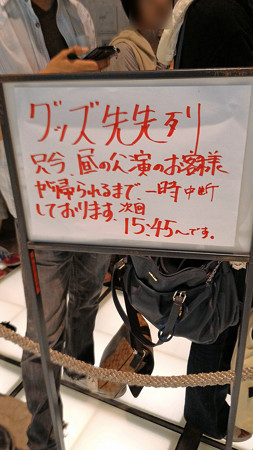 グッズ先先列
只今、昼の公演のお客様
が帰られるまで、一時中断
しております。次回
15:45〜です。